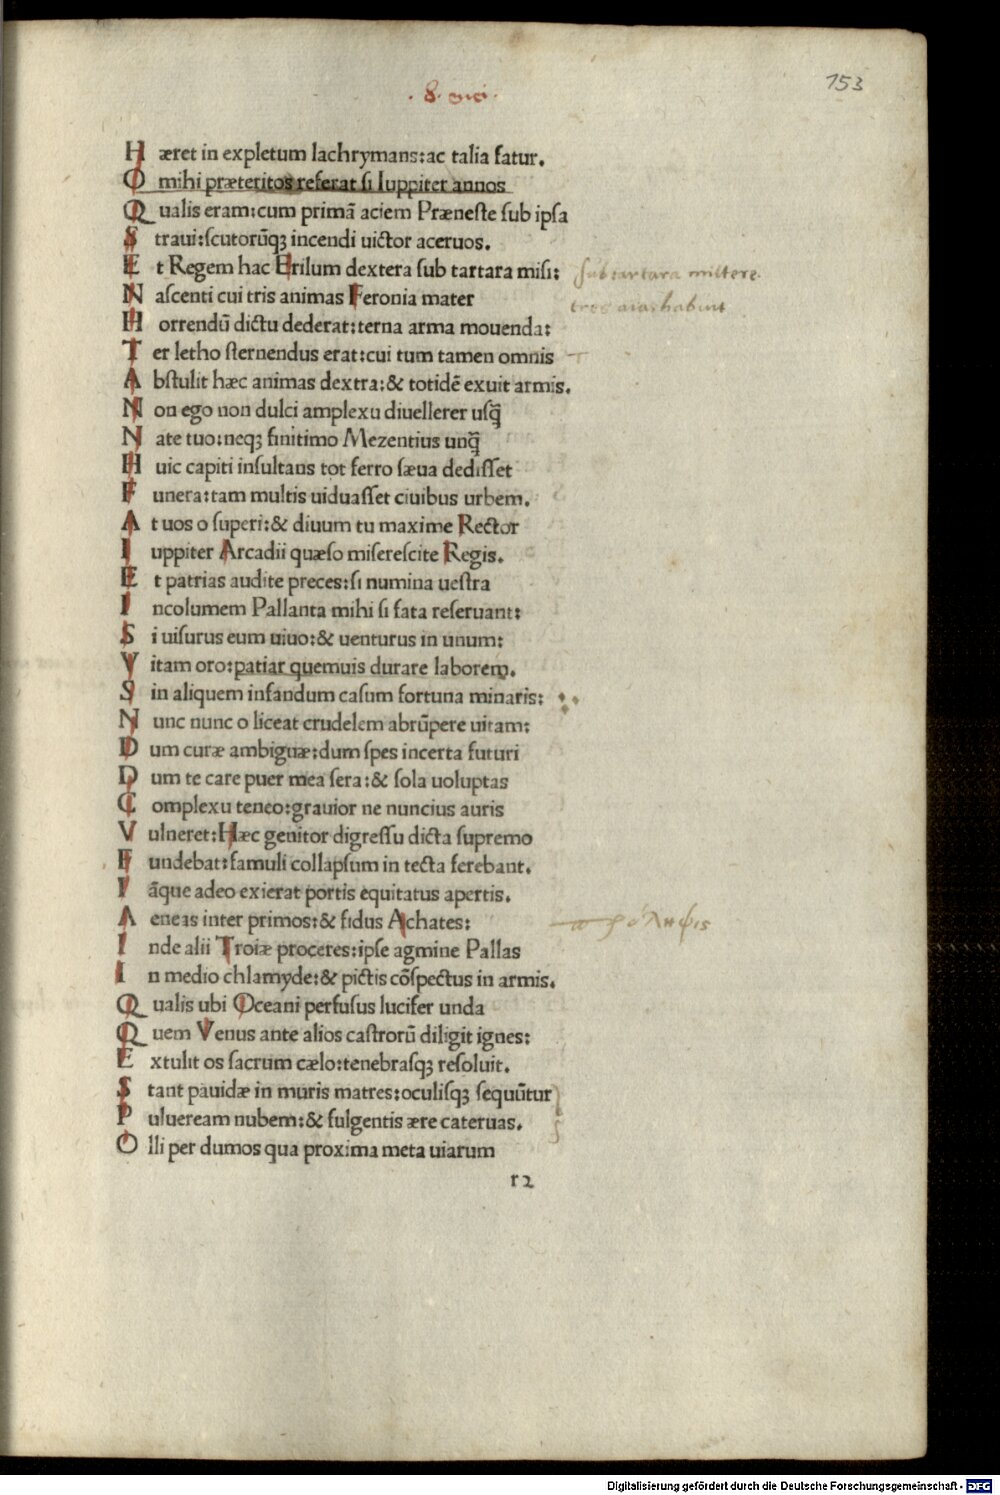 153
H æret in expletum lachrymans: ac talia fatur.
O mihi præteritos referat si Iuppiter annos
Q ualis eram: cum primā aciem Præneste sub ipsa
S traui: scutorūq; incendi uictor aceruos.
E t Regem hac Erilum dextera sub tartara misi: sub tartara mittere
N ascenti cui tris animas Feronia mater tres aīas habuit
H orrendū dictu dederat: terna arma mouenda:
T er letho sternendus erat: cui tum tamen omnis
A bstulit hæc animas dextra: & totidē exuit armis.
N on ego non dulci amplexu diuellerer usq̄
N ate tuo: neq; finitimo Mezentius unq̄
H uic capiti insultans tot ferro sæua dedisset
F unera: tam multis uiduasset ciuibus urbem.
A t uos o superi: & diuum tu maxime Rector
I uppiter Arcadii quæso miserescite Regis.
E t patrias audite preces: si numina uestra
I ncolumem Pallanta mihi si fata reseruant:
S i uisurus eum uiuo: & uenturus in unum:
V itam oro: patiar quemuis durare laborem.
S in aliquem infandum casum fortuna minaris:
N unc nunc o liceat crudelem abrūpere uitam:
D um curæ ambiguæ: dum spes incerta futuri
D um te care puer mea sera: & sola uoluptas
C omplexu teneo: grauior ne nuncius auris
V ulneret: Hæc genitor digressu dicta supremo
F undebat: famuli collapsum in tecta ferebant.
I āque adeo exierat portis equitatus apertis.
A eneas inter primos: & fidus Achates: πρόληψις
I nde alii Troiæ proceres: ipse agmine Pallas
I n medio chlamyde: & pictis cōspectus in armis.
Q ualis ubi Oceani perfusus lucifer unda
Q uem Venus ante alios castrorū diligit ignes:
E xtulit os sacrum cælo: tenebrasq; resoluit.
S tant pauidæ in muris matres: oculisq; sequūtur
P ulueream nubem: & fulgentis ære cateruas.
O lli per dumos qua proxima meta uiarum
r2
Digitalisierung gefördert durch die Deutsche Forschungsgemeinschaft - DFG